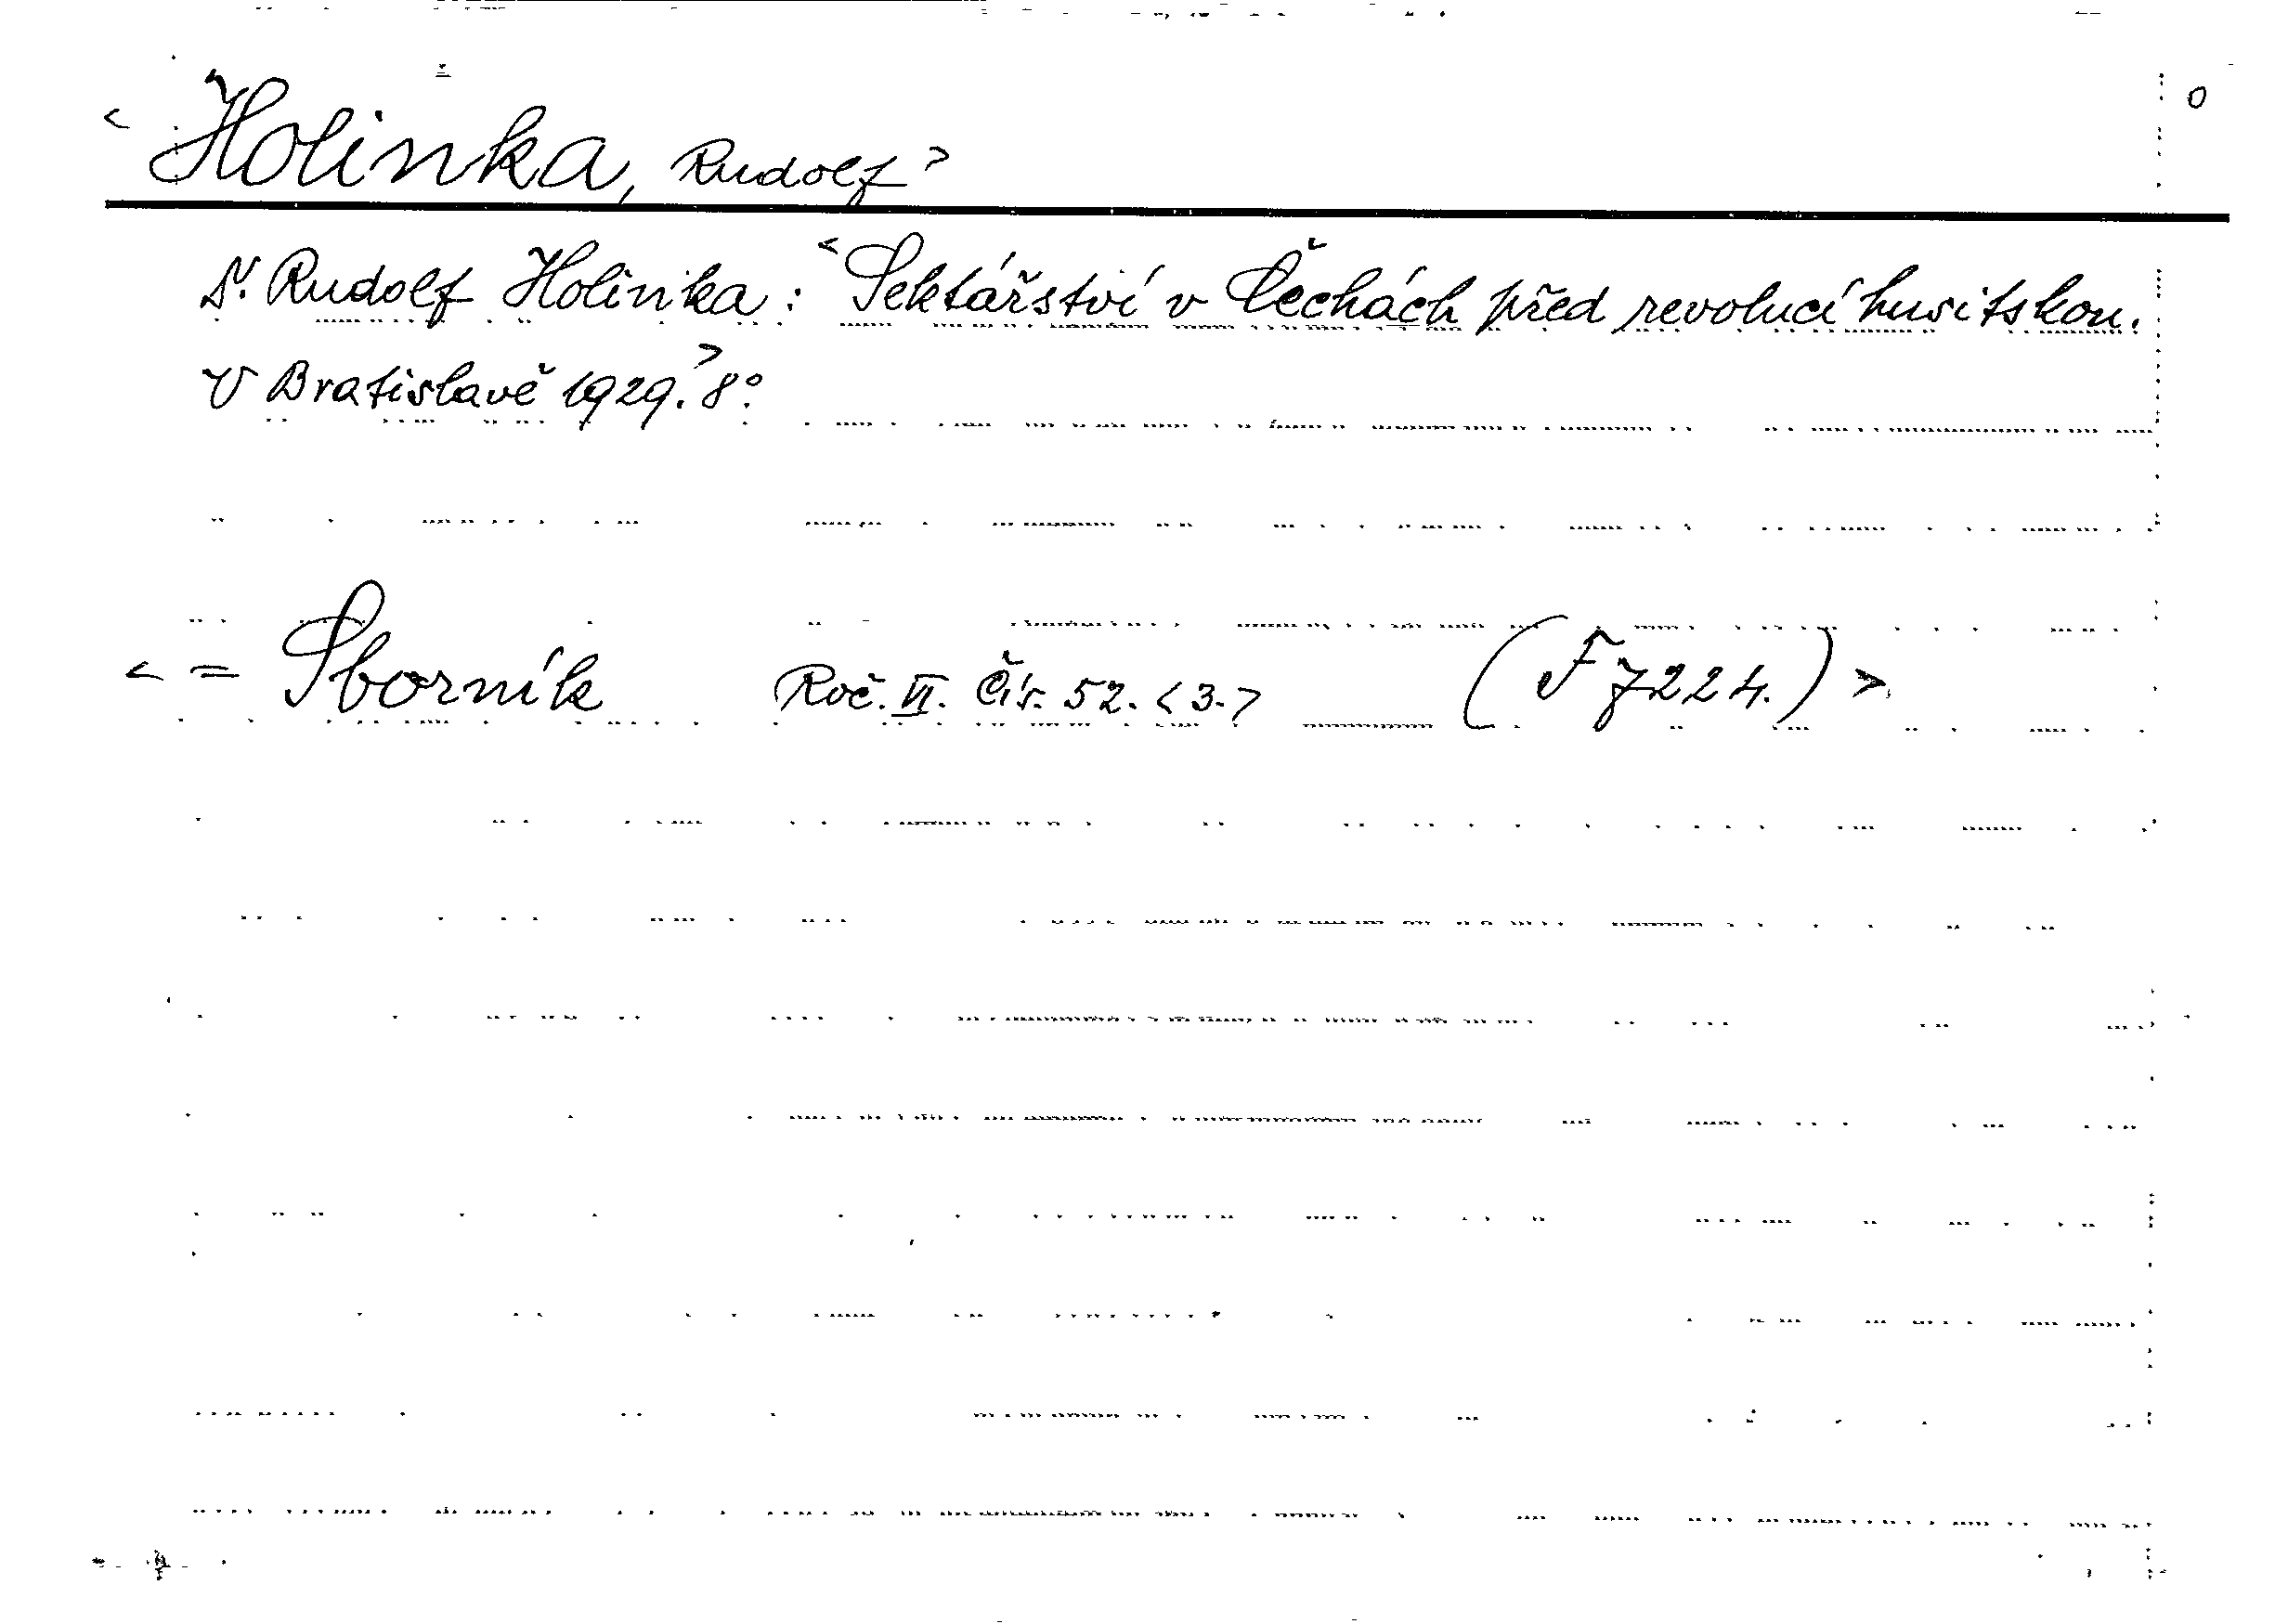 < Holinka, Rudolf > 0
Dr. Rudolf Holinka: <Sektářství v Čechách před revolucí husitskou.
V Bratislavě 1929.> 8°.
< = Sborník Roč. VI. Čís. 52. <3.> (F 7224.) >